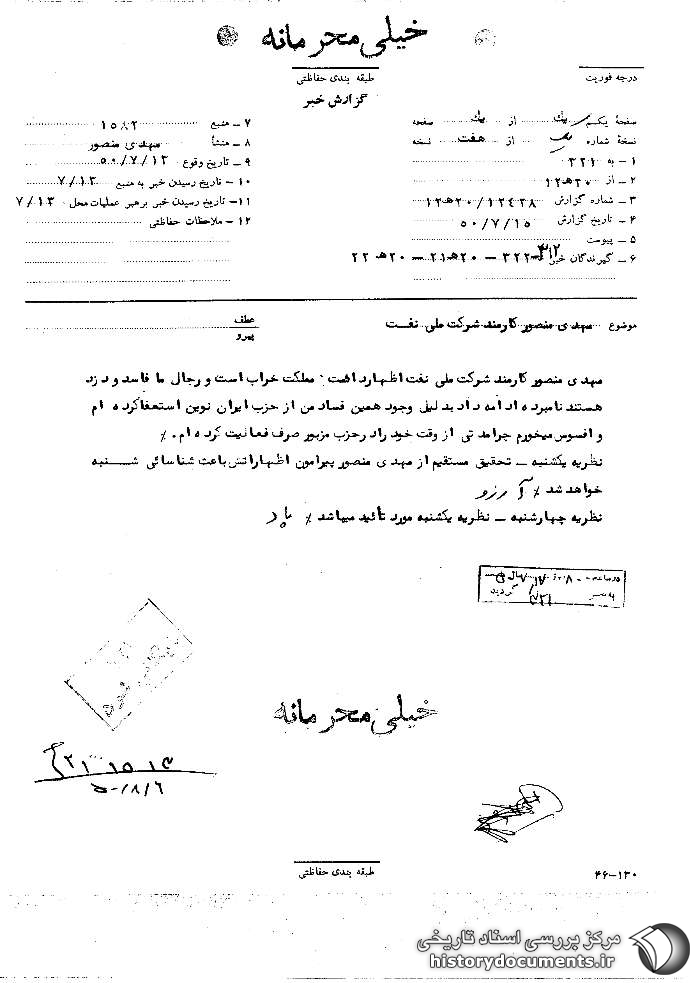 خیلی محرمانه
طبقه بندی حفاظتی
درجه فوریت
گزارش خبر
صفحهٔ یکم یك از یك صفحه
نسخهٔ شماره یک از هفت نسخه
۱ – به ۳۲۱
۲ – از ۲۰هـ۱۲
۳ – شماره گزارش ۱۲۴۳۸/۲۰هـ۱۲
۴ – تاریخ گزارش ۵۰/۷/۱۵
۵ – پیوست
۶ – گیرندگان خبر ۳۱۲ – ۳۲۲ – ۲۰هـ۲۱ – ۲۰هـ۲۲
۷ – منبع ۱۵۸۲
۸ – منشأ مهدی منصور
۹ – تاریخ وقوع ۵۰/۷/۱۳
۱۰ – تاریخ رسیدن خبر به منبع ۷/۱۳
۱۱ – تاریخ رسیدن خبر برهبر عملیات محل ۷/۱۳
۱۲ – ملاحظات حفاظتی
موضوع مهدی منصور کارمند شرکت ملی نفت
عطف
پیرو
مهدی منصور کارمند شرکت ملی نفت اظهارداشت: مملکت خراب است و رجال ما فاسد و دزد
هستند نامبرده ادامه داد بدلیل وجود همین فساد من از حزب ایران نوین استعفا کرده ام
و افسوس میخورم چرا مدتی از وقت خود را در حزب مزبور صرف فعالیت کرده ام. ٪
نظریه یکشنبه – تحقیق مستقیم از مهدی منصور پیرامون اظهاراتش باعث شناسائی شنبه
خواهد شد ٪ آرزو
نظریه چهارشنبه – نظریه یکشنبه مورد تأئید میباشد ٪
گردید
خیلی محرمانه
۲۱ ۱۵ ۱۳
۵۰/۸/۶
طبقه بندی حفاظتی
۴۶–۱۳۰
مرکز بررسی اسناد تاریخی
historydocuments.ir